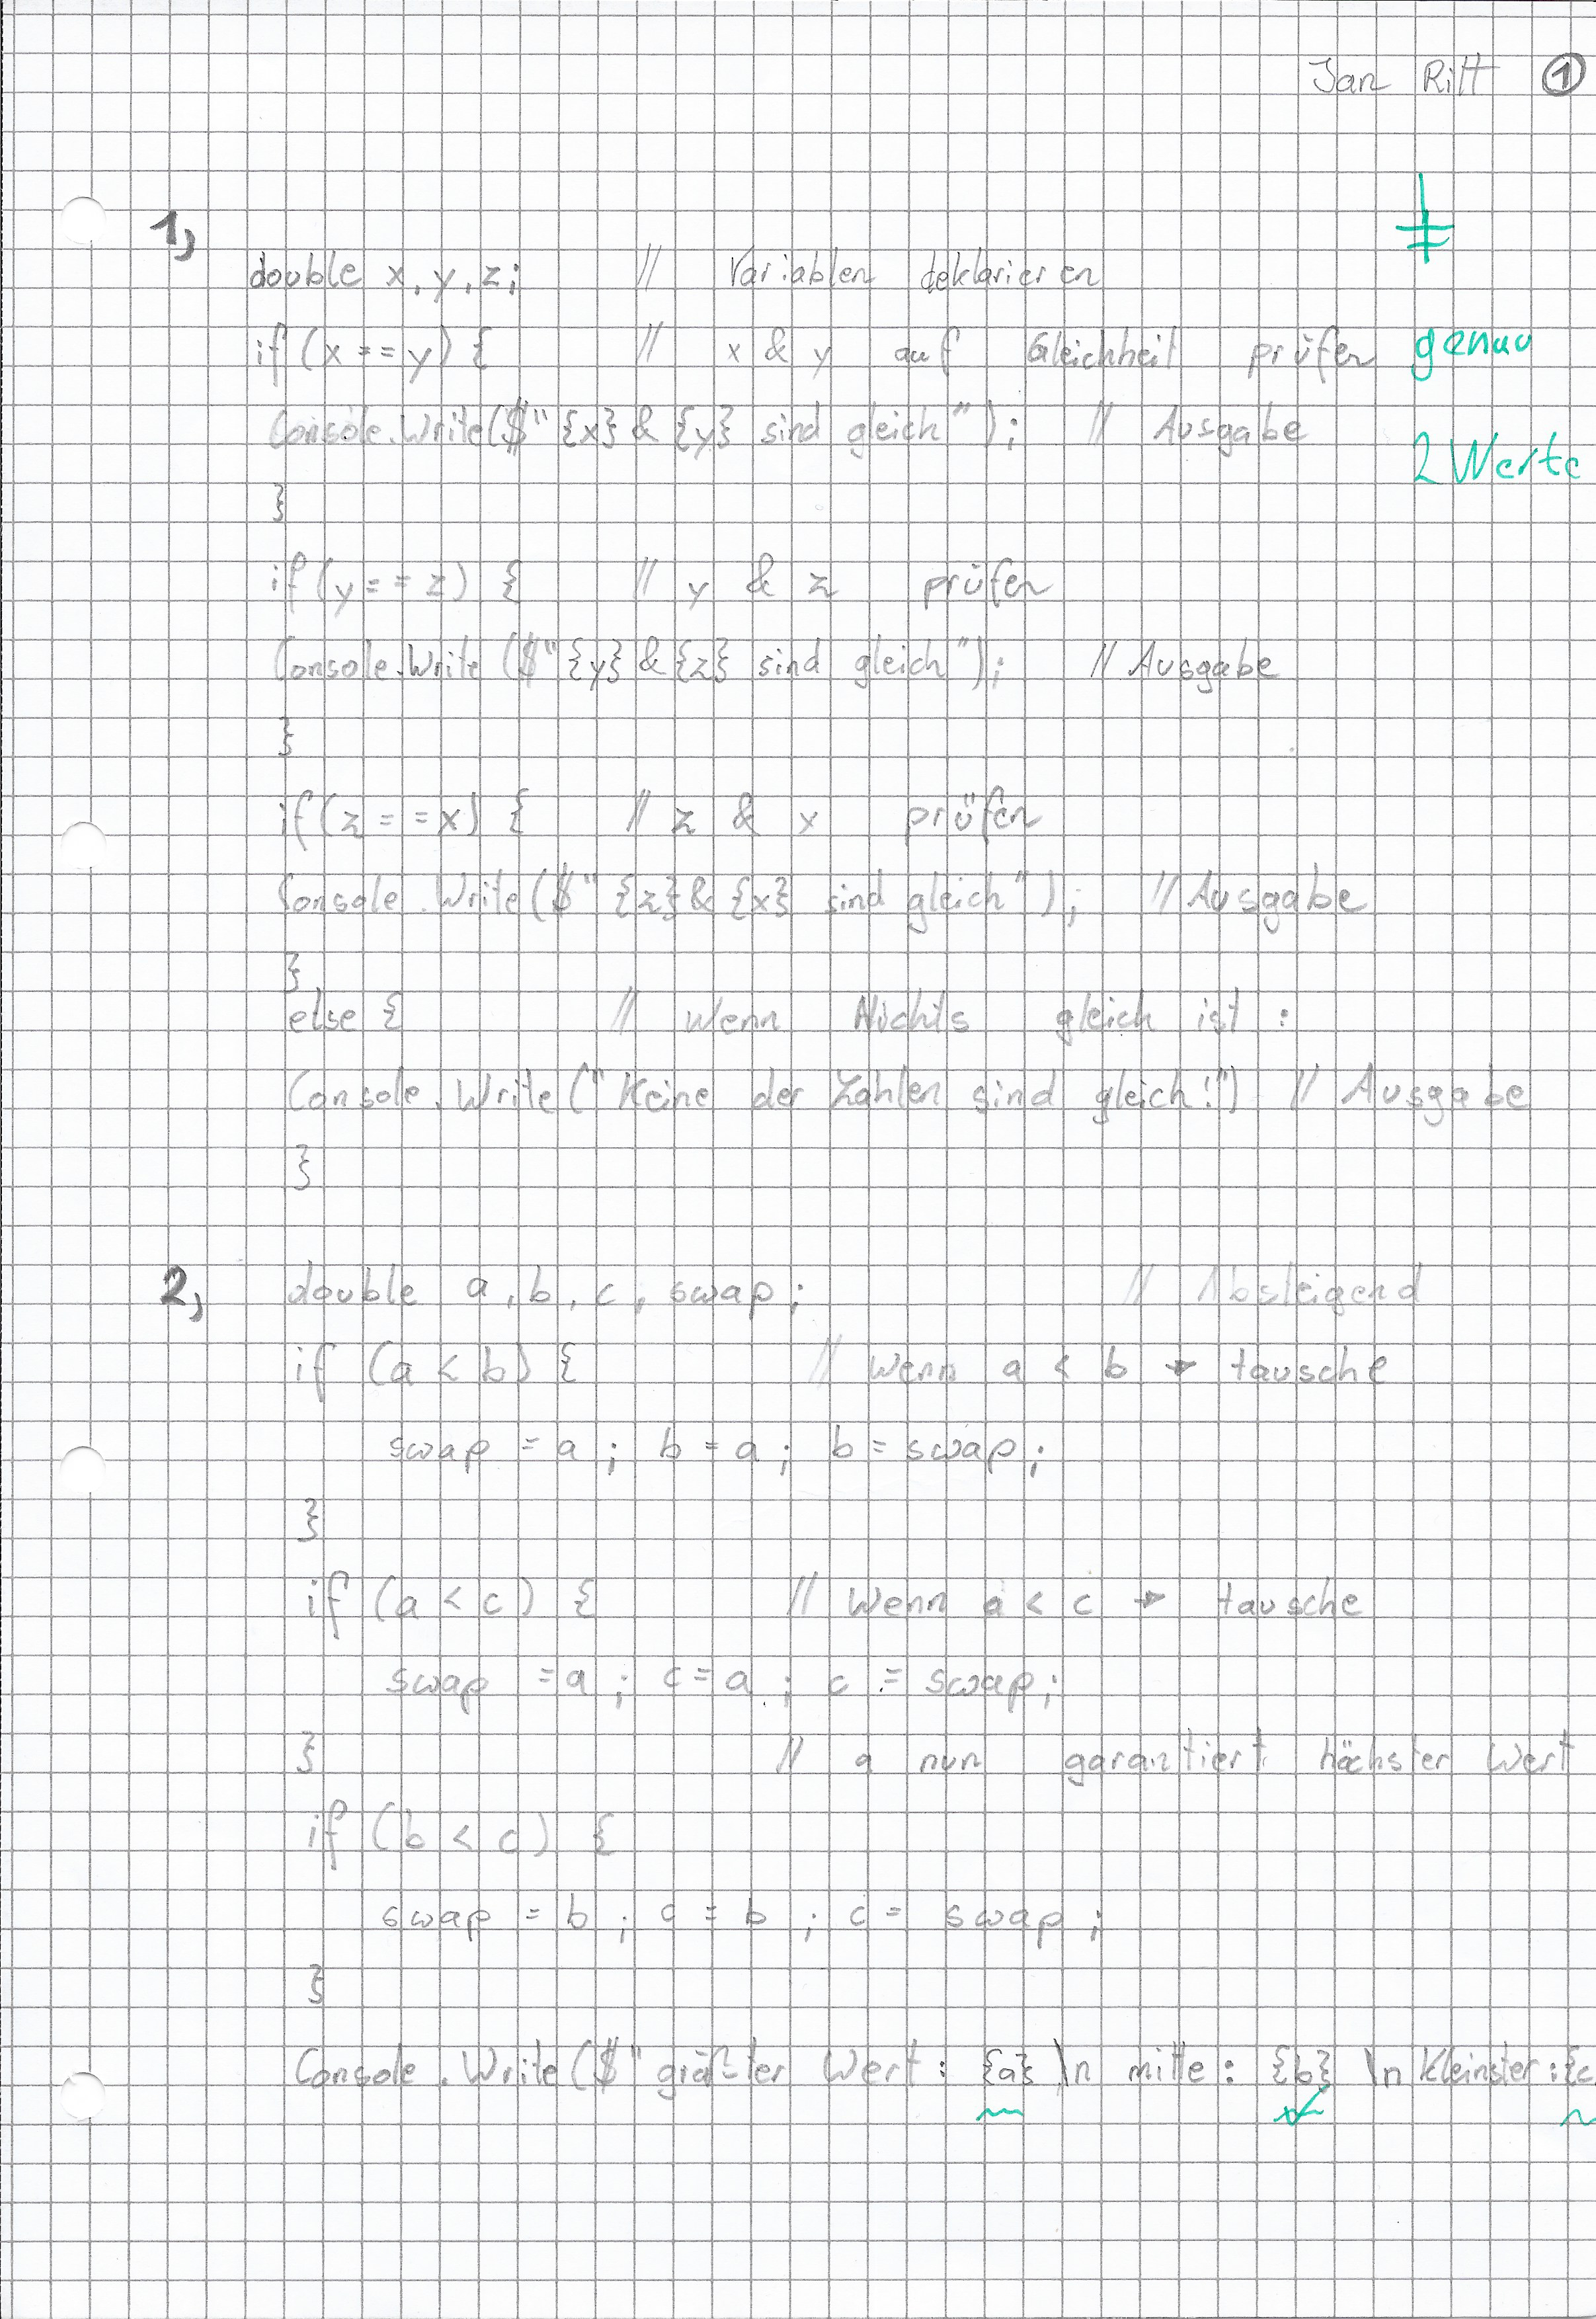 Jan Ritt 1
1,
double x, y, z; // Variablen deklarieren
if (x == y) { // x & y auf Gleichheit prüfen genau
Console.Write($"{x} & {y} sind gleich"); // Ausgabe 2 Werte
}
if (y == z) { // y & z prüfen
Console.Write($"{y} & {z} sind gleich"); // Ausgabe
}
if (z == x) { // z & x prüfen
Console.Write($"{z} & {x} sind gleich"); // Ausgabe
}
else { // Wenn Nichts gleich ist :
Console.Write("Keine der Zahlen sind gleich!") // Ausgabe
}
2, double a, b, c, swap; // Absteigend
if (a < b) { // Wenn a < b → tausche
swap = a; b = a; b = swap;
}
if (a < c) { // Wenn a < c → tausche
swap = a; c = a; c = swap;
} // a nun garantiert höchster Wert
if (b < c) {
swap = b; c = b; c = swap;
}
Console.Write($"größter Wert: {a} \n mitte: {b} \n Kleinster: {c